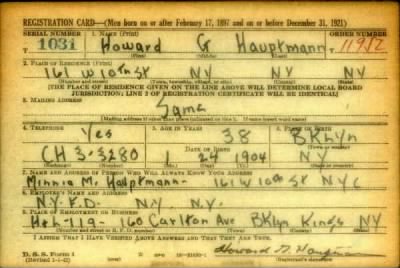 REGISTRATION CARD—(Men born on or after February 17, 1897 and on or before December 31, 1921)
SERIAL NUMBER 1. NAME (Print) ORDER NUMBER
T 1031 Howard G Hauptmann 11982
2. PLACE OF RESIDENCE (Print)
161 W 10th St NY NY
(Number and street) (Town, township, village, or city) (County) (State)
[THE PLACE OF RESIDENCE GIVEN ON THE LINE ABOVE WILL DETERMINE LOCAL BOARD
JURISDICTION; LINE 2 OF REGISTRATION CERTIFICATE WILL BE IDENTICAL]
3. MAILING ADDRESS
Same
[Mailing address if other than place indicated on line 2. If same insert word same]
4. TELEPHONE 5. AGE IN YEARS 6. PLACE OF BIRTH
Yes 38 BKLyn
DATE OF BIRTH (Town or county)
CH 3-3280 1 24 1904 NY
(Exchange) (Number) (Mo.) (Day) (Yr.) (State or country)
7. NAME AND ADDRESS OF PERSON WHO WILL ALWAYS KNOW YOUR ADDRESS
Minnie M. Hauptmann- 161 W 10th St NYC
8. EMPLOYER'S NAME AND ADDRESS
N.Y.F.D. N.Y. N.Y.
9. PLACE OF EMPLOYMENT OR BUSINESS
H+L-119- 160 Carlton Ave BKlyn Kings NY
(Number and street or R. F. D. number) (Town) (County) (State)
I AFFIRM THAT I HAVE VERIFIED ABOVE ANSWERS AND THAT THEY ARE TRUE.
D. S. S. Form 1 Howard G.
(Revised 1-1-42)